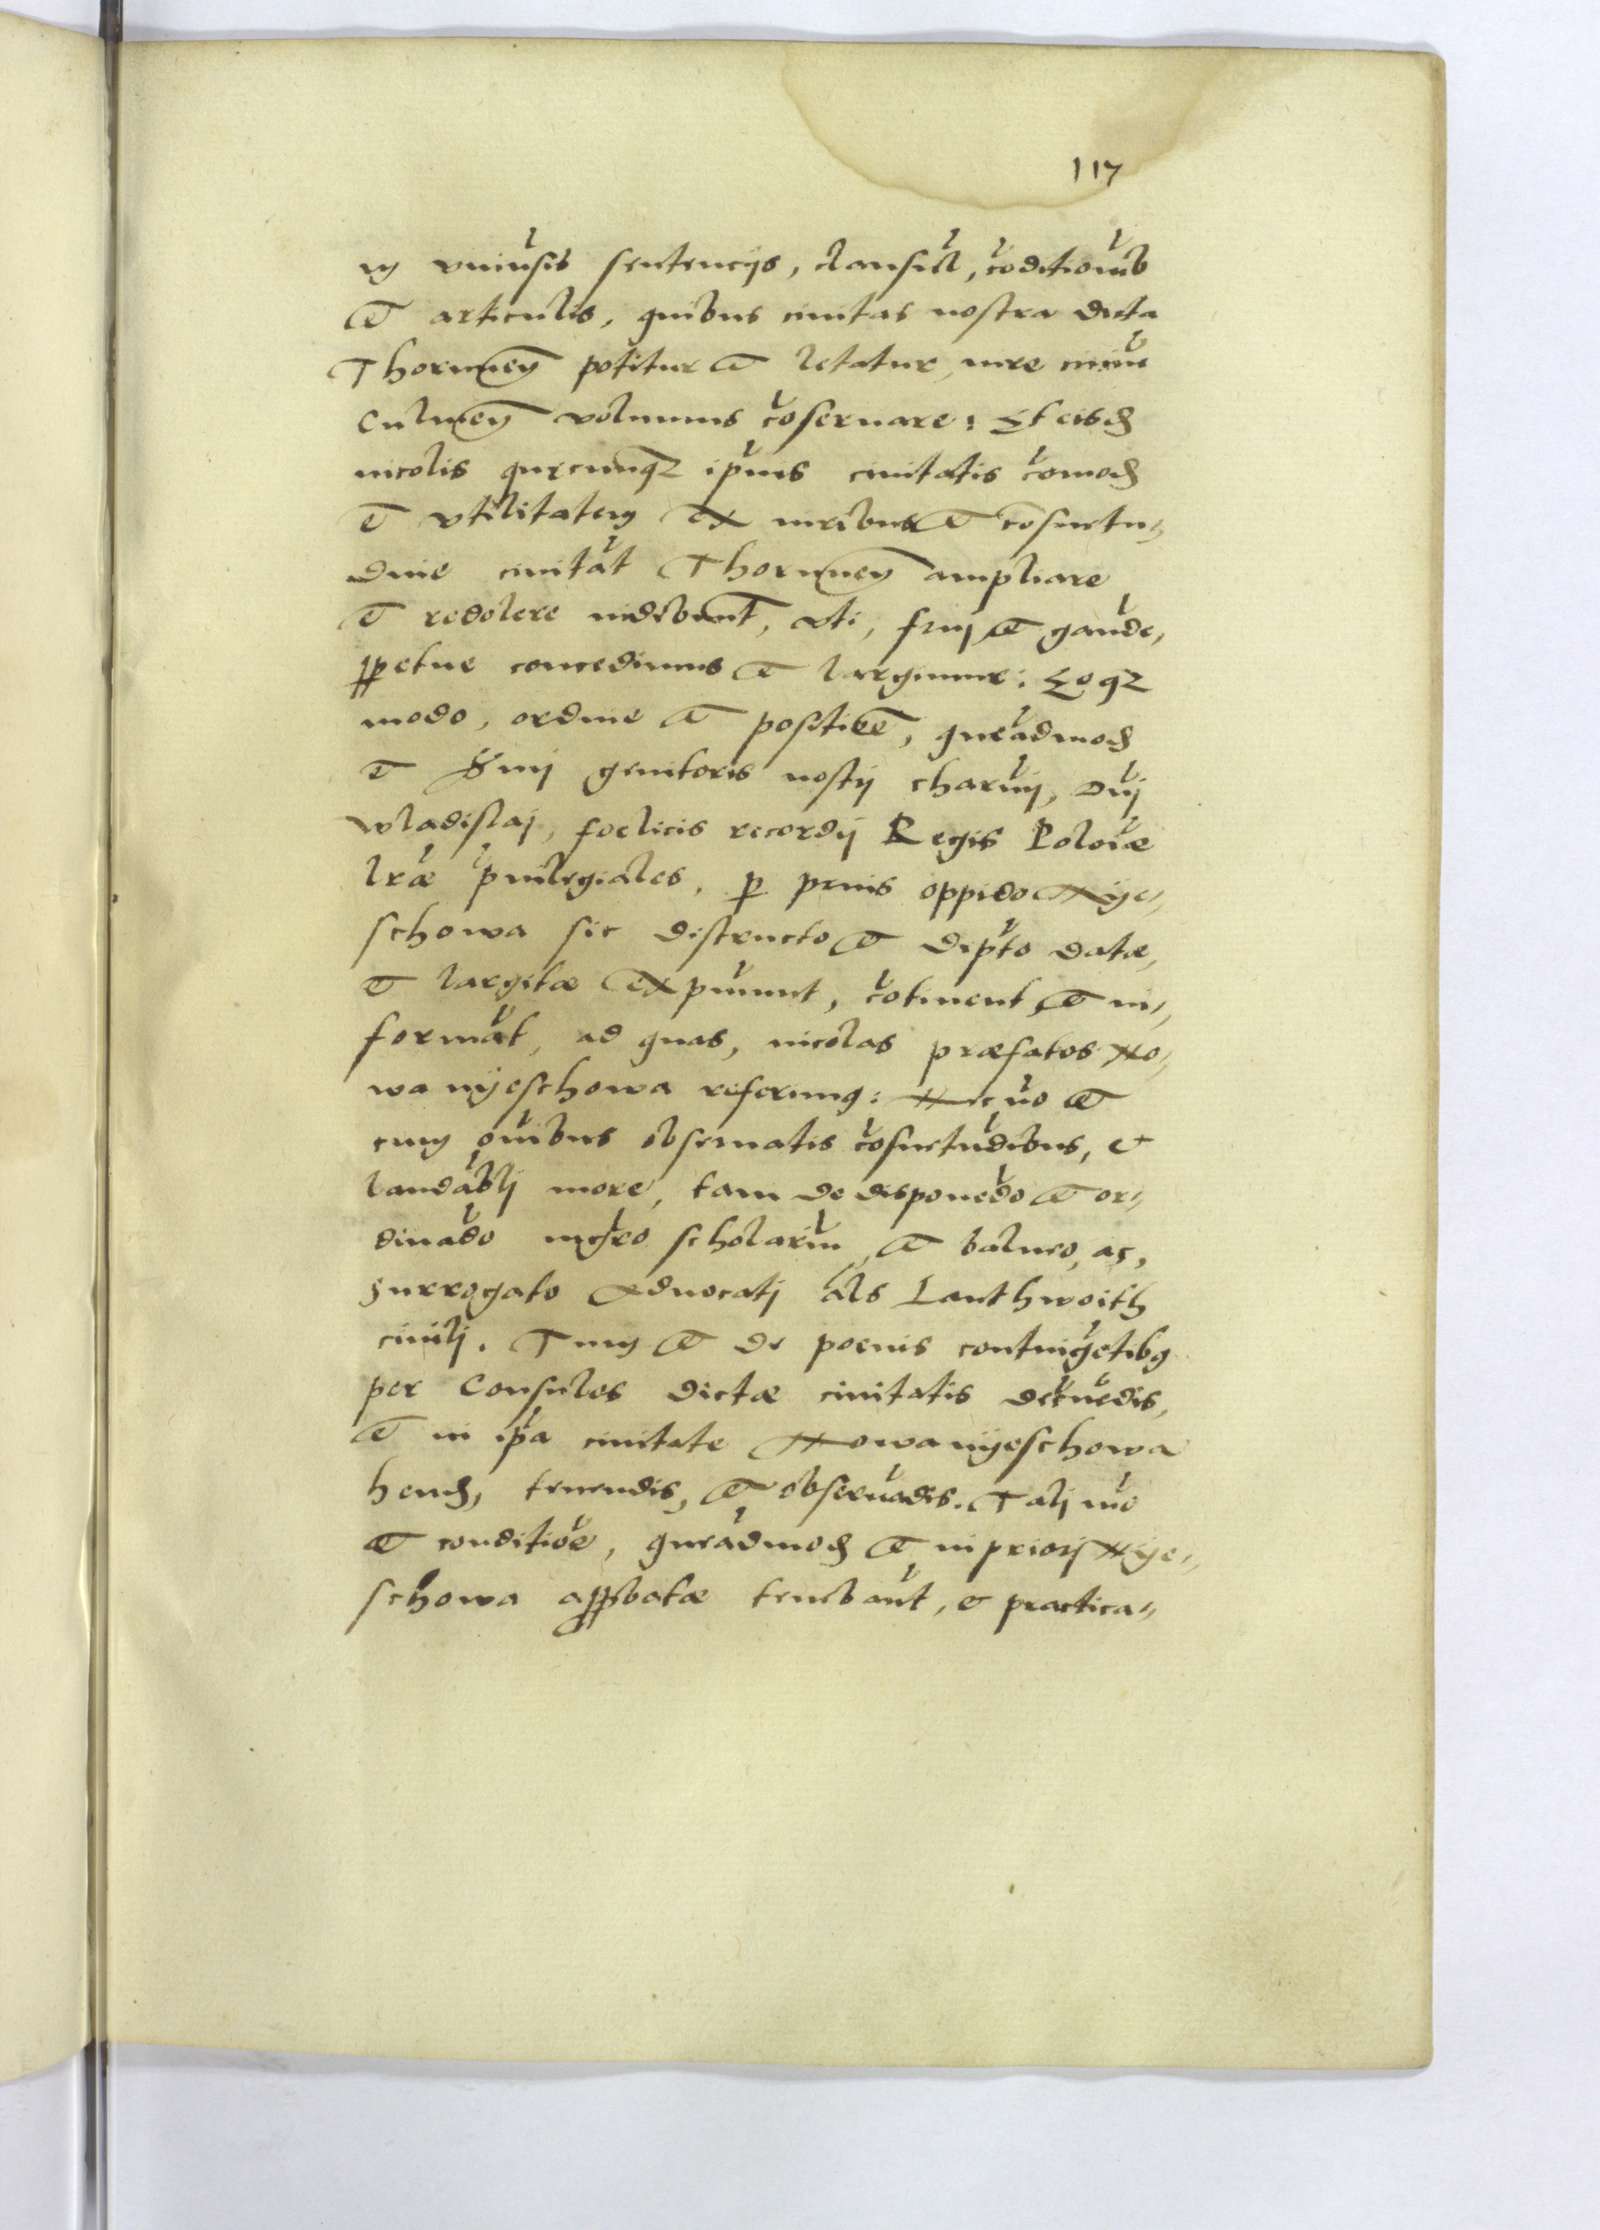 117
in vniusis sentencijs, clausul, coditionib
et articulis, quibus ciuitas nostra dicta
Thorunen potitur et letatur, iure
Culmen volumus coseruare: Et eisd
incolis quecunqz ipius ciuitatis comod
et vtilitatem ex iuribus et cosuetu„
dine ciuitat Thorunen ampliare
et redolere videbunt, vti, frui et gaude,
ppetue concedimus et largimur: Eoqz
modo, ordine et, queadmod
et genitoris nostrj charmj, Dnj
wladislaj, foelicis recordij Regis Poloiae
lrae priulegiales, p prius oppido Nye„
schowa sic distructo et depto datae,
et largitae exprimunt, cotinent et in„
format, ad quas, incolas praefatos No„
wa nyeschowa referimus: Nec no et
cum oibus obseruatis cosuetudibus, et
laudabli more, tam de disponedo et or„
dinado mgro scholarium, et balneo, ac,
surrogato Aduocatj als Lanthwoith
ciuilj. Tum et de poenis contingetibus
per Consules dictae ciuitatis decernedis,
et in ipa ciuitate Nowanyeschowa
hend, tenendis, et obseruadis. Talj mo
et conditioe, queadmod et in priorj Nye„
schowa appbatae tenebant, et practica„